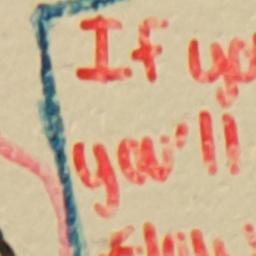 If yo
you'll